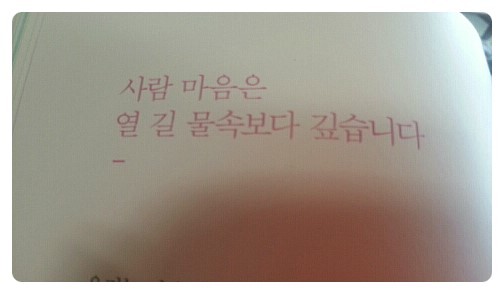 사람 마음은
열 길 물속보다 깊습니다
–